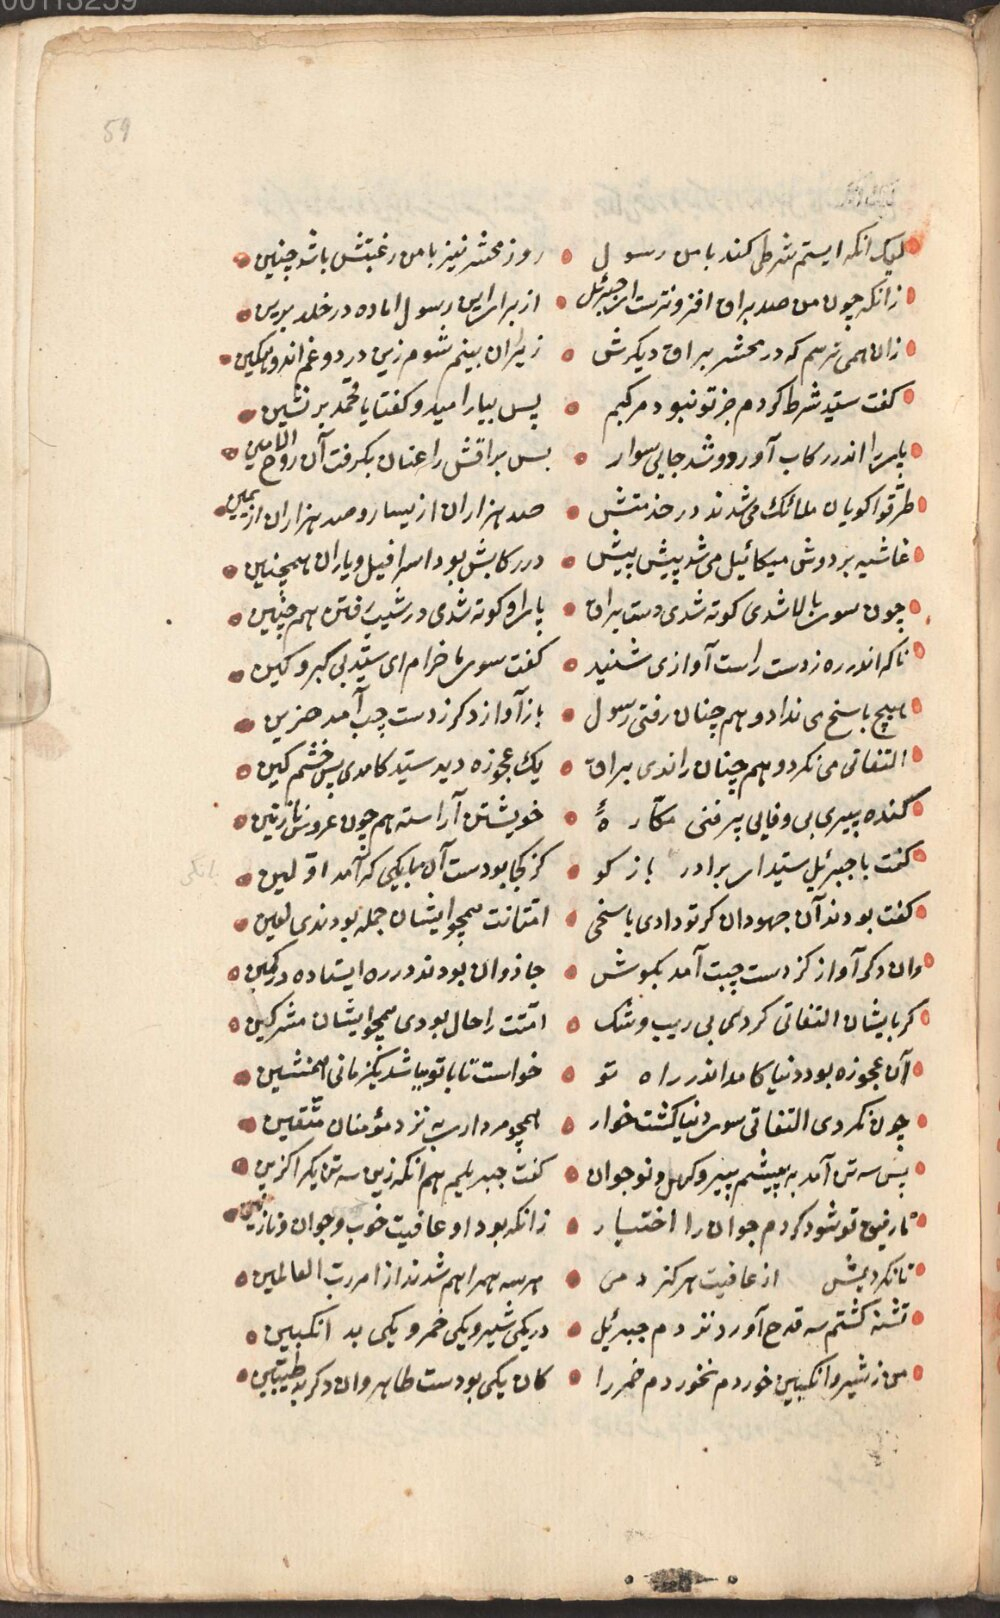 00113259
59
لیک انکه ایستم شرطی کند با من رسول • روز محشر نیز با من رغبتش باشد چنین
زانکه چون من صد براق افزونترست ای جبرئیل • از برای این رسول اماده در خلد برین
زان همی ترسم که در محشر براق دیکرش • زیر ران بینم شوم زین درد و غم اندوهکین
کفت سید شرط کردم جز تو نبود مرکبم • پس بیارامید و کفتا یا محمد بر نشین
پایرا اندر رکاب آورد و شد جایی سوار • پس براقش را عنان بکرفت آن روح الامین
طرقوا کویان ملائک می شدند در خدمتش • صد هزاران از یسار و صد هزاران از یمین
غاشیه بر دوش میکائیل می شد پیش پیش • در رکابش بود اسرافیل و یاران همچنین
چون سوی بالا شدی کوته شدی دست براق • پای او کوته شدی در شیب رفتن هم چنین
ناکه اندر ره ز دست راست آوازی شنید • کفت سوی ما خرام ای سید بی کبر و کین
هیچ پاسخ می نداد و هم چنان رفتی رسول • باز آواز دکر ز دست چپ آمد حزین
التفاتی می نکرد و هم چنان راندی براق • یک عجوزه دید سید کامدی پس خشم کین
کنده پیری بی وفایی پر فنی مکّارهٔ • خویشتن آراسته هم چون عروس نازنین
کفت با جبرئیل سید ای برادر باز کو • کز کجا بودست آن بانکی که آمد اولین
کفت بودند آن جهودان کر تو دادی پاسخی • امتانت همچو ایشان جمله بودندی لعین
وان دکر آواز کز دست چپت آمد بکوش • جاذوان بودند در ره ایستاده در کمین
کر بایشان التفاتی کردی بی ریب و شک • امتت را حال بودی همچو ایشان مشرکین
آن عجوزه بود دنیا کامد اندر راه تو • خواست تا با تو بباشد یکزمانی همنشین
چون نکردی التفاتی سوی دنیا کشت خوار • همچو مرداری به نزد مؤمنان متقین
پس سه تن آمد به پیشم پیر و کهل و نوجوان • کفت جبریلم هم انکه زین سه تن یکرا کزین
تا رفیق تو شود کردم جوان را اختیار • زانکه بود او عافیت خوب و جوان و نازنین
تا نکردیمش از عافیت هرکز دمی • هر سه همراهم شدند از امر رب العالمین
تشنه کشتم سه قدح آورد نزدم جبرئیل • در یکی شیر و یکی خمر و یکی بد انکبین
من ز شیر و انکبین خوردم نخوردم خمر را • کان یکی بودست طاهر وان دکر بد طیبین
بانکی